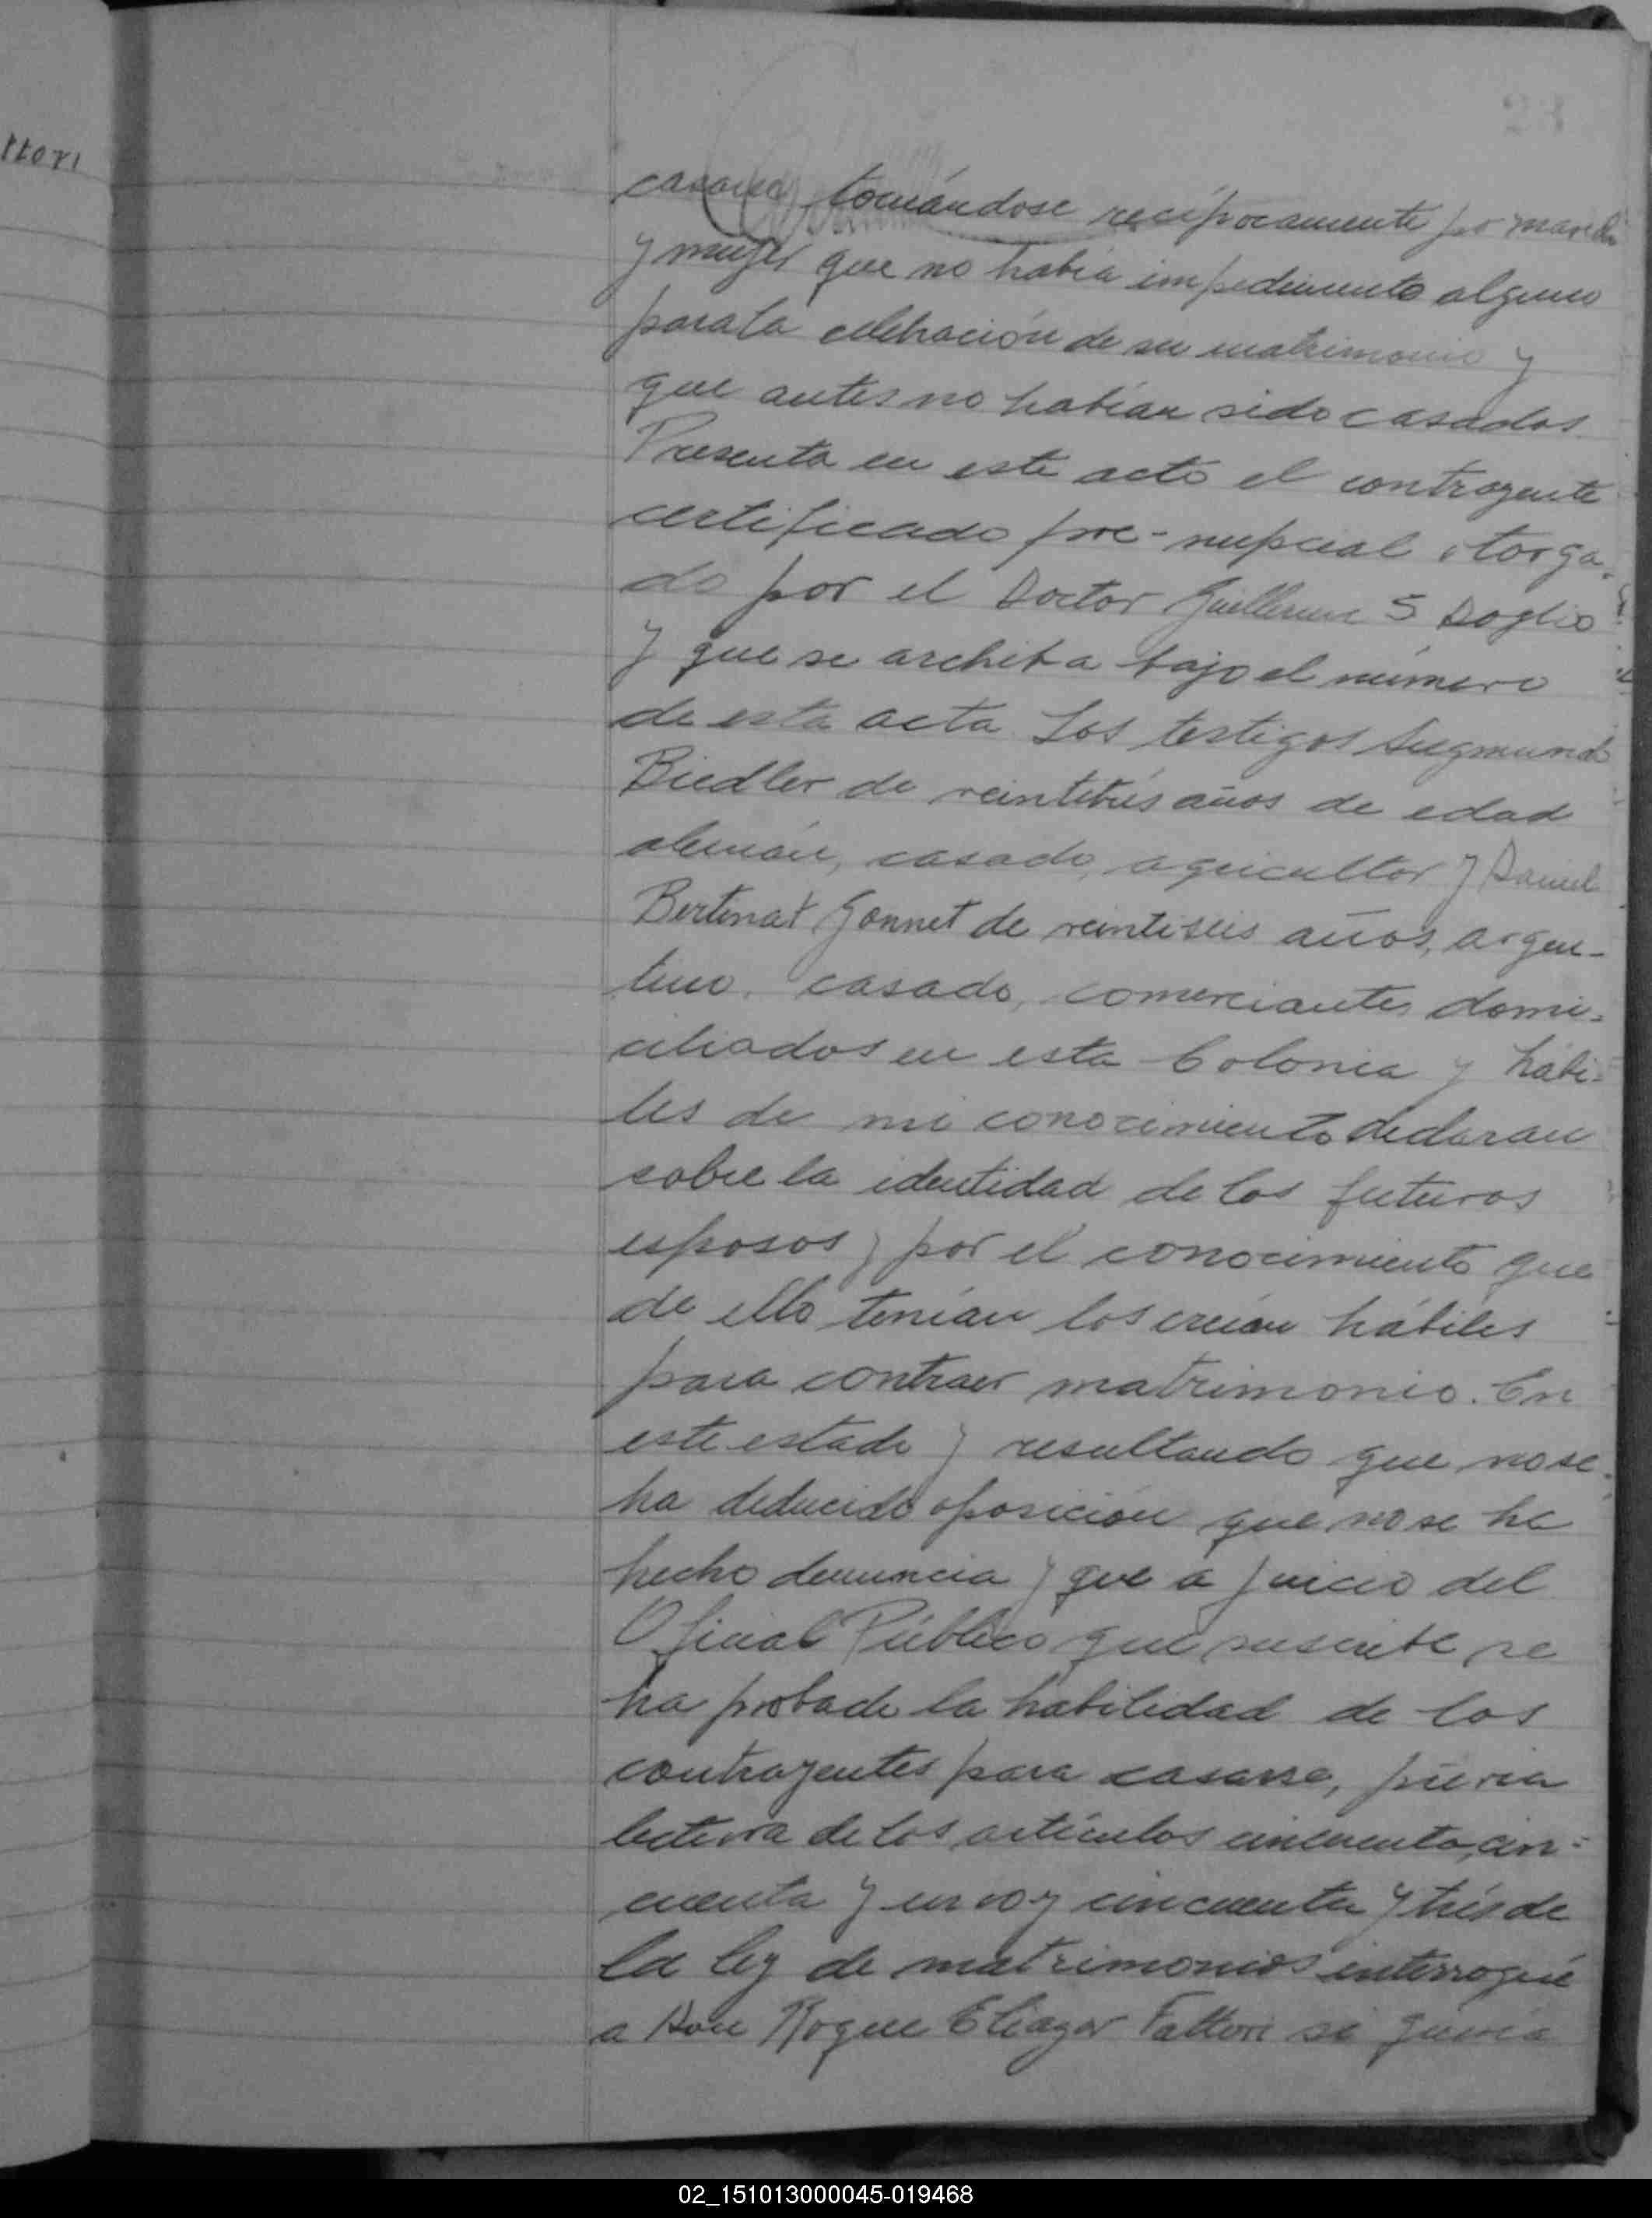 ttori
23
casarse tomándose recíprocamente por marido
y mujer que no había impedimento alguno
para la celebración de su matrimonio y
que antes no habían sido casados.
Presenta en este acto el contrayente
certificado pre-nupcial otorga-
do por el Doctor Guillermo S Doglio
y que se archiva bajo el número
de esta acta. Los testigos Siegmundo
Biedler de veintitrés años de edad
alemán, casado, agricultor y Daniel
Bertinat Gonnet de veintiseis años, argen-
tino, casado, comerciante, domi-
ciliados en esta Colonia y hábi-
les de mi conocimiento declaran
sobre la identidad de los futuros
esposos y por el conocimiento que
de ello tenían los creían hábiles
para contraer matrimonio. En
este estado y resultando que no se
ha deducido oposición que no se ha
hecho denuncia y que a juicio del
Oficial Público que suscribe se
ha probado la habilidad de los
contrayentes para casarse, previa
lectura de los artículos cincuenta, cin-
cuenta y uno y cincuenta y tres de
la ley de matrimonios interrogué
a Don Roque Eliazar Fattori si quería
02_151013000045-019468